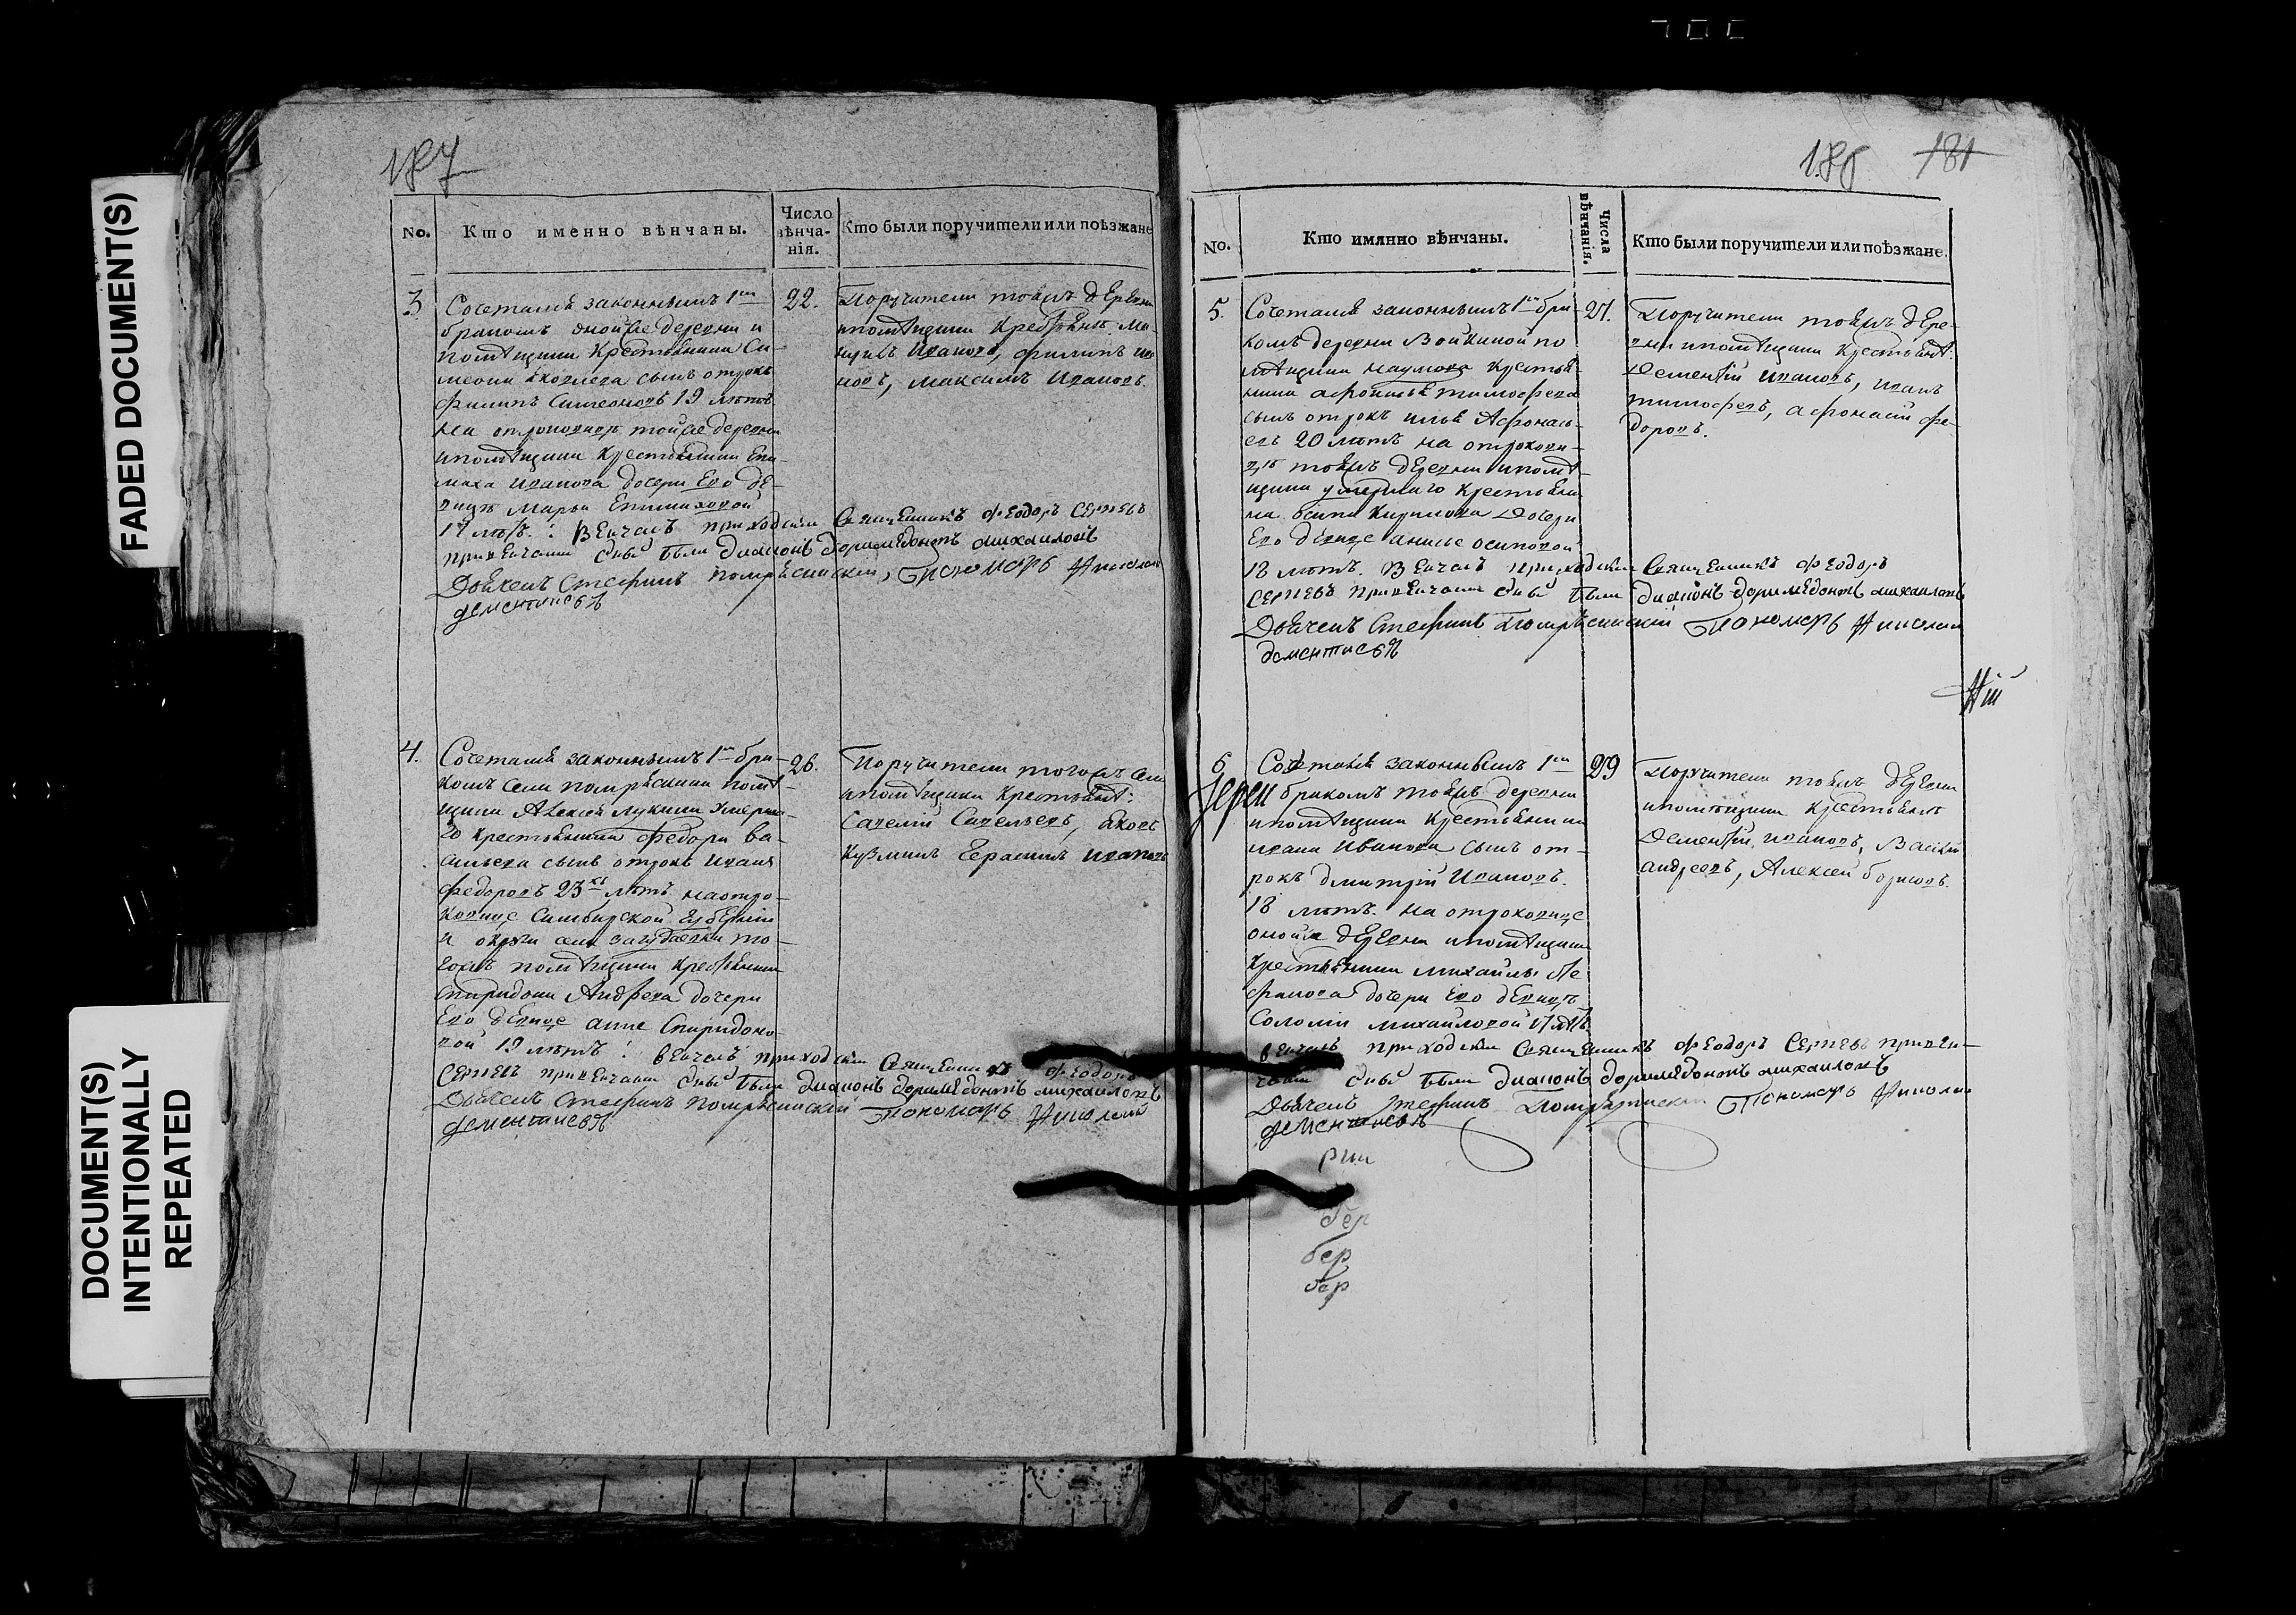 FADED DOCUMENT(S)
DOCUMENT(S)
INTENTIONALLY
REPEATED
187
No.
Кто именно вѣнчаны.
Число
вѣнча-
нія.
Кто были поручители или поѣзжане
3
Сочетались законнымъ 1мъ
бракомъ оной же деревни и
помѣщика Крестьянина Си-
меона Яковлева сынъ отрокъ
филипъ Симеоновъ 19 лѣтъ
на отроковицѣ той же деревни
и помѣщика Крестьянина Епи-
маха Иванова дочери Его дѣ-
вицѣ Марьи Епимаховой
17 лѣтъ: Венчалъ приходскій Священникъ Феодоръ Сергѣевъ
при венчании сныи были диаконъ доримедонтъ михаиловъ
Дьячекъ Стефанъ помрѣскинскій, Пономарь Николай
дементиевъ
22.
Поручители тоежъ дЕревни
и помѣщика Кресьянѣ Ма-
Ивановъ, филипъ
максимъ Ивановъ.
4.
Сочетались законнымъ 1мъ бра-
комъ села помрѣскина помѣ-
щика Алексея лукина умерша-
го крестьянина федора Ва-
сильева сынъ отрокъ Иванъ
федоровъ 23хъ лѣтъ на отро-
ковице Симбирской губернии
и округи села загудаевки то-
гожъ помѣщика Кресьянина
спиридона Андрева дочери
Его дѣвице анне Спиридоно-
вой 19 лѣтъ: венчалъ приходскій Священникъ Феодоръ
Сергѣевъ при венчании сныи были диаконъ доримедонтъ михаиловъ
Дьячекъ Стефанъ Помрѣскинскій Пономарь Николай
дементиевъ
26.
Поручители тогожъ села
и помѣщика Крестьянѣ:
Савелій Савельевъ, Яковъ
Кузминъ Герасимъ Ивановъ
188 181
No.
Кто имянно вѣнчаны.
Числа
вѣнчанія.
Кто были поручители или поѣзжане.
5.
Сочетались законнымъ 1мъ бра-
комъ деревни Войкиной по
мѣщика наумова крестья-
нина афонасья тимофеева
сынъ отрокъ илья Афонась-
евъ 20 лѣтъ на отрокови-
цѣ тоежъ дЕревни и помѣ-
щика умершаго крестьяни
на осипа Кирилова дочери
Его дѣвице анисье осиповой
18 лѣтъ. Венчалъ приходскій Священникъ Феодоръ
Сергѣевъ при венчании сныи были диаконъ доримедонтъ михаиловъ
Дьячекъ Стефанъ Помрѣскинскій Пономарь Николай
дементиевъ
27.
Поручители тоежъ дЕре-
вни и помѣщика Крестьянѣ:
Дементій Ивановъ, иванъ
тимофевъ, афонасій фе-
доровъ.
6
Іереи
Сочетались законнымъ 1мъ
бракомъ тоежъ деревни
и помѣщика Крестьянина
ивана Иванова сынъ от-
рокъ дмитрій Ивановъ.
18 лѣтъ. на отроковице
оной же дЕревни и помѣщика
Крестьянина михаилы Сте
фанова дочери Его дѣвицѣ
Соломіи михайловой 17 лѣтъ
венчалъ приходскій Священникъ Феодоръ Сергѣевъ при вен-
чании сныи были диаконъ доримедонтъ михаиловъ
Дьячекъ Стефанъ Помрѣскинскій Пономарь Николай
дементиевъ
29
Поручители тоежъ дЕревни
и помѣщика Крестьянѣ
Дементій Ивановъ, Василій
андреевъ, Алексей борисовъ.
бер
бер
бер